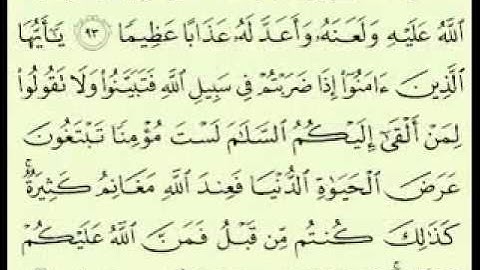 ٱللَّهُ عَلَيْهِ وَلَعَنَهُۥ وَأَعَدَّ لَهُۥ عَذَابًا عَظِيمًا ٩٣ يَٰٓأَيُّهَا
ٱلَّذِينَ ءَامَنُوٓا۟ إِذَا ضَرَبْتُمْ فِى سَبِيلِ ٱللَّهِ فَتَبَيَّنُوا۟ وَلَا تَقُولُوا۟
لِمَنْ أَلْقَىٰٓ إِلَيْكُمُ ٱلسَّلَٰمَ لَسْتَ مُؤْمِنًا تَبْتَغُونَ
عَرَضَ ٱلْحَيَوٰةِ ٱلدُّنْيَا فَعِندَ ٱللَّهِ مَغَانِمُ كَثِيرَةٌ ۚ
كَذَٰلِكَ كُنتُم مِّن قَبْلُ فَمَنَّ ٱللَّهُ عَلَيْكُمْ